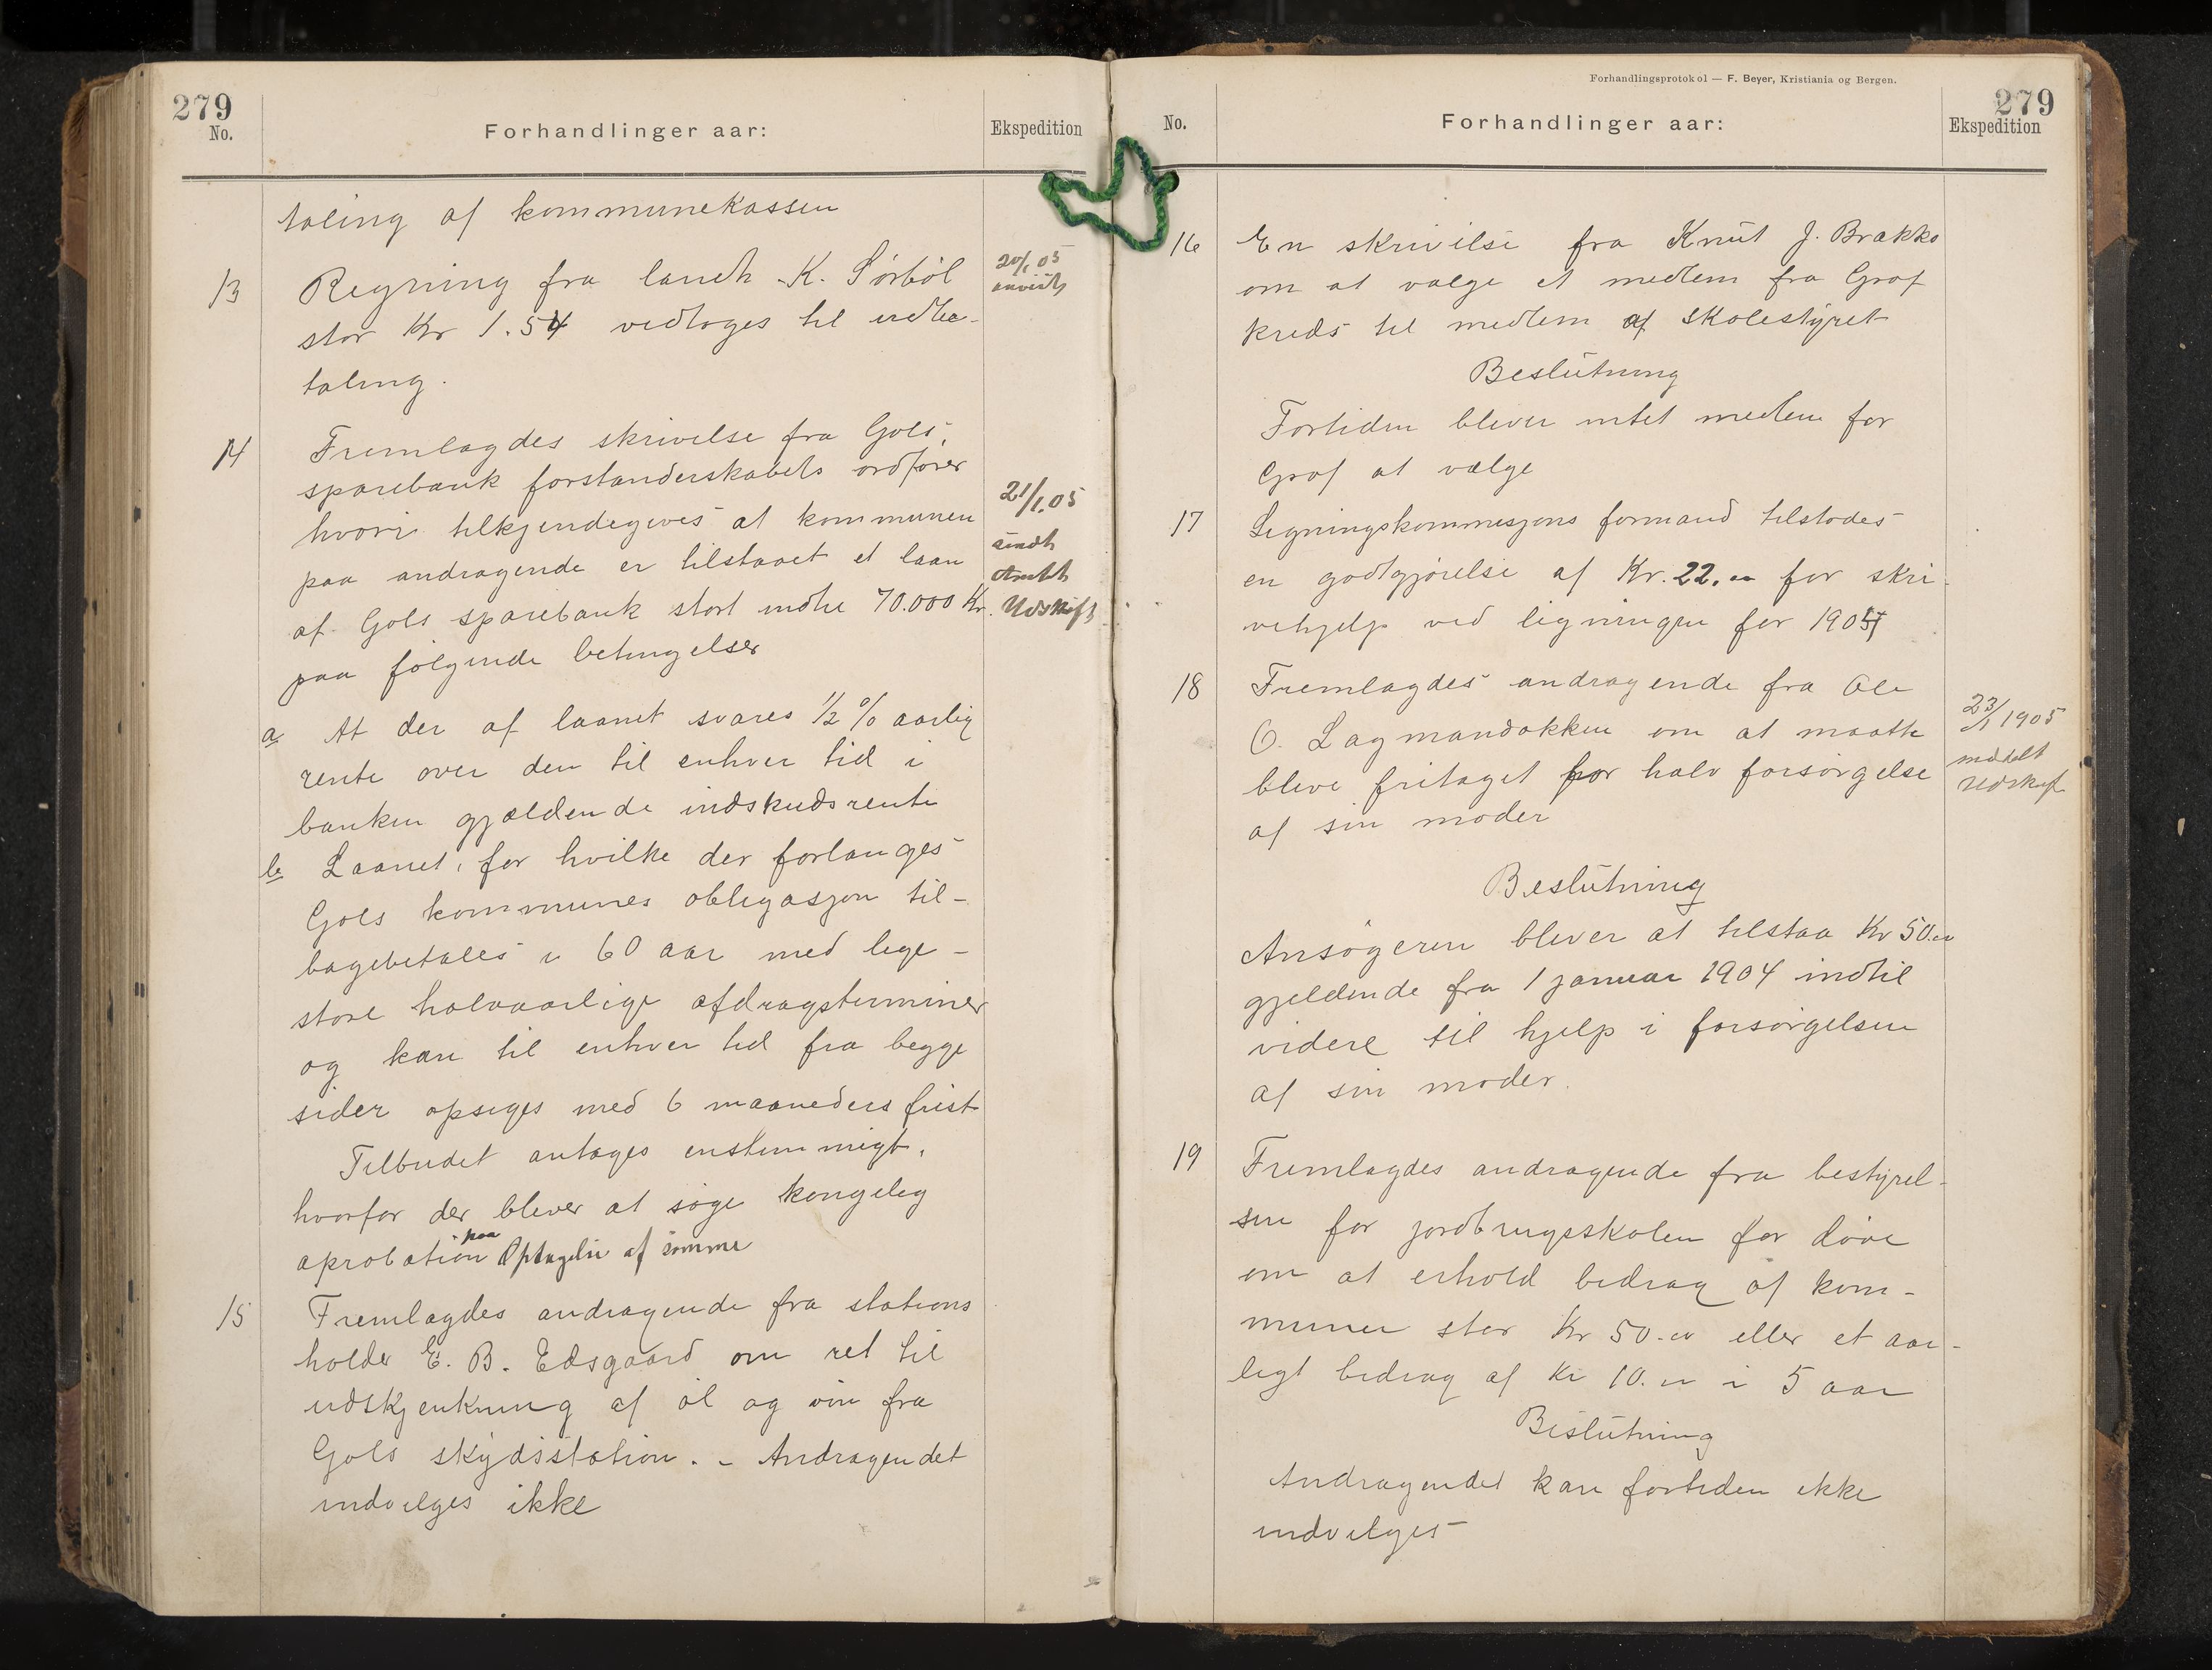 279
No.
Forhandlinger aar:
Ekspedition
taling af kommunekassen
13
Regning fra landh. K. Sørbøl
stor Kr 1.54 vedtoges til udbe-
taling.
20/1 05
anvist
14
Fremlagdes skrivelse fra Gols
sparebank forstanderskabets ordfører
hvori tilkjendegives at kommunen
paa andragende er tilstaaet et laan
af Gols sparebank stort indtil 70.000 Kr.
paa følgende betingelser
21/1.05
sendt
Udskift
a At der af laanet svares 1/2 % aarlig
rente over den til enhver tid i
banken gjældende indskudsrente
b Laanet, for hvilke der forlanges
Gols kommunes obligasjon til-
bagebetales i 60 aar med lige-
store halvaarlige afdragsterminer
og kan til enhver tid fra begge
sider opsiges med 6 maaneders frist
Tilbudet antages enstemmigt,
hvorfor der bliver at søge kongelig
aprobation paa Optagelse af samme
15
Fremlagdes andragende fra stations
holder E. B. Edsgaard om ret til
udskjenkning af øl og vin fra
Gols skydsstation. - Andragendet
indvilges ikke
Forhandlingsprotokol — F. Beyer, Kristiania og Bergen.
279
No.
Forhandlinger aar:
Ekspedition
16
En skrivilse fra Knut J. Brakko
om at valge et medlem fra Grøf
kreds til medlem af skolestyret
Beslutning
Fortiden bliver intet medlem for
Grøf at vælge
17
Ligningskommisjons formand tilstodes
en godtgjørelse af Kr. 22.00 for skri-
vehjelp ved ligningen for 1904
18
Fremlagdes andragende fra Ole
O. Lagmandsokken om at maatte
blive fritaget for halv forsørgelse
af sin moder
23/1 1905
meddelt
Udskrift
Beslutning
Ansøgeren bliver at tilstaa Kr 50.00
gjeldende fra 1 januar 1904 indtil
videre til hjelp i forsørgelsen
af sin moder.
19
Fremlagdes andragende fra bestyrel-
sen for jordbrugsskolen for døve
om at erhold bidrag af kom-
munen stor Kr 50.00 eller et aar-
ligt bidrag af Kr 10.00 i 5 aar
Beslutning
Andragendet kan fortiden ikke
indvilges